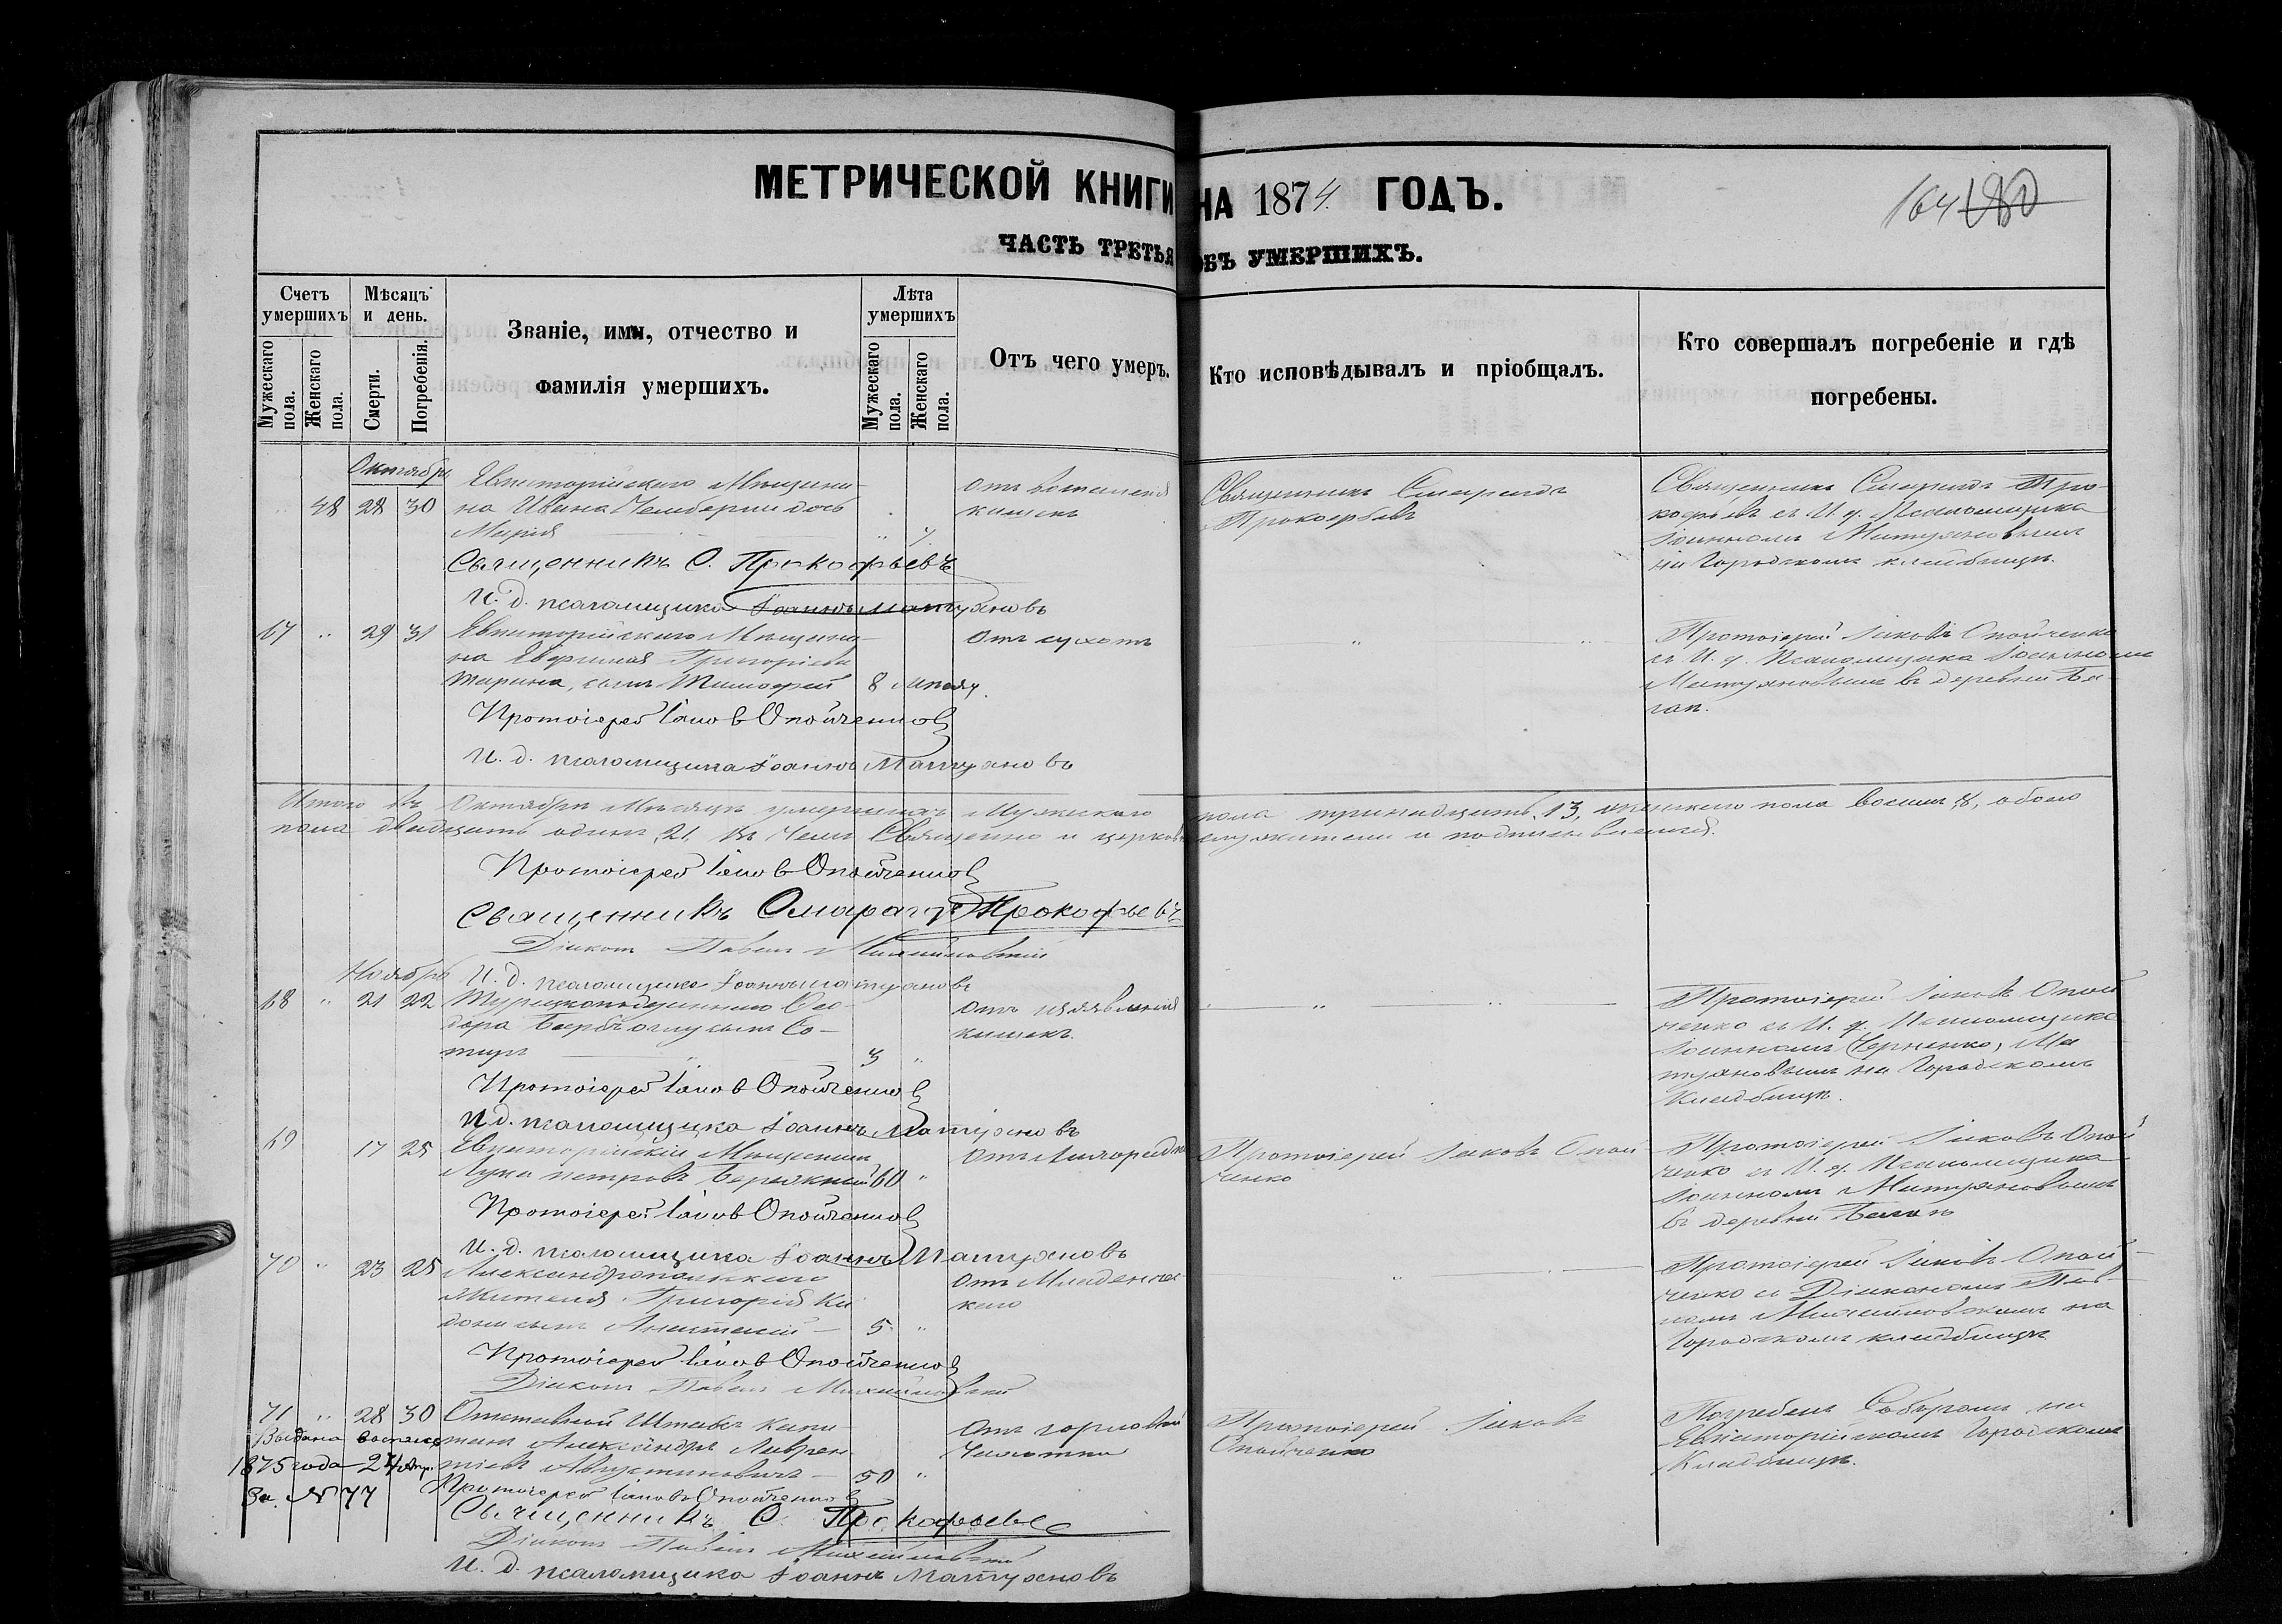 МЕТРИЧЕСКОЙ КНИГИ НА 1874 ГОДЪ.
164
ЧАСТЬ ТРЕТЬЯ ОБЪ УМЕРШИХЪ.
Счетъ умершихъ
Мужескаго пола.
Женскаго пола.
Мѣсяцъ и день.
Смерти.
Погребенія.
Званіе, имя, отчество и фамилія умершихъ.
Лѣта умершихъ
Мужескаго пола.
Женскаго пола.
Отъ чего умеръ.
Кто исповѣдывалъ и пріобщалъ.
Кто совершалъ погребеніе и гдѣ погребены.
Октябрь
48 28 30
Евпаторійскаго Мѣщани-
на Ивана дочь
Марія
отъ воспаленія
кишекъ
Священникъ Смарагдъ
Прокофьевъ
Священникъ Смарагдъ Про-
кофьевъ съ И. д. Псаломщика
Іоанномъ Матуяновымъ
на Городскомъ кладбищѣ.
Священникъ С. Прокофьевъ
И. д. псаломщика Іоаннъ Матуяновъ
67 " 29 31
Евпаторійскаго Мѣщани-
на Евфимія Григоріева
сынъ Тимофей 8 мѣсяц.
Отъ сухотъ
Протоіерей Іаковъ Опойченко
съ И. д. Псаломщика Іоанномъ
Матуяновымъ въ деревни Ба
гаи.
Протоіерей Іаковъ Опойченко
И. д. псаломщика Іоаннъ Матуяновъ
Итого въ Октябрѣ Мѣсяцѣ умершихъ Мужскаго пола тринадцать, 13, женскаго пола восемь, 8, обоего
пола двадцать одинъ, 21, въ чемъ Священно и церковнослужители и подписываемся.
Протоіерей Іаковъ Опойченко
Священникъ Смарагдъ Прокофьевъ
Діаконъ Павелъ Михайловскій
И. д. псаломщика Іоаннъ Матуяновъ
Ноябрь
68 " 21 22
Турецкоподданнаго Фео-
дора сынъ Со-
3 "
отъ
кишекъ.
Протоіерей Іаковъ Опой
ченко съ И. д. Псаломщика
Іоанномъ Черненко, Ма
туяновымъ на Городскомъ
Кладбищѣ.
Протоіерей Іаковъ Опойченко
И. д. псаломщика Іоаннъ Матуяновъ
69 17 25
Евпаторійскій Мѣщанинъ
Лука Петровъ Бережный 60 "
Отъ
Протоіерей Іаковъ Опой
ченко
Протоіерей Іаковъ Опой
ченко съ И. д. Псаломщика
Іоанномъ Матуяновымъ
въ деревни
Протоіерей Іаковъ Опойченко
И. д. псаломщика Іоаннъ Матуяновъ
70 " 23 25
Александропольскаго
Жителя Григорія Ки
дони сынъ Анастасій 5 "
отъ Младенче
каго
Протоіерей Іаковъ Опой-
ченко съ Діакономъ Пав-
ломъ Михайловскимъ на
Городскомъ кладбищѣ
Протоіерей Іаковъ Опойченко
Діаконъ Павелъ Михайловскій
71 " 28 30
Отставной Штабсъ Капи-
танъ Александръ Лаврен
тіевъ Августиновичъ 50 "
Отъ горловой
Чахотки
Протоіерей Іаковъ
Опойченко
Погребенъ Соборомъ на
Евпаторійскомъ Городскомъ
Кладбищѣ.
Выдана
1875 года 24 Апр.
За № 77
Протоіерей Іаковъ Опойченко
Священникъ С. Прокофьевъ
Діаконъ Павелъ Михайловскій
И. д. псаломщика Іоаннъ Матуяновъ